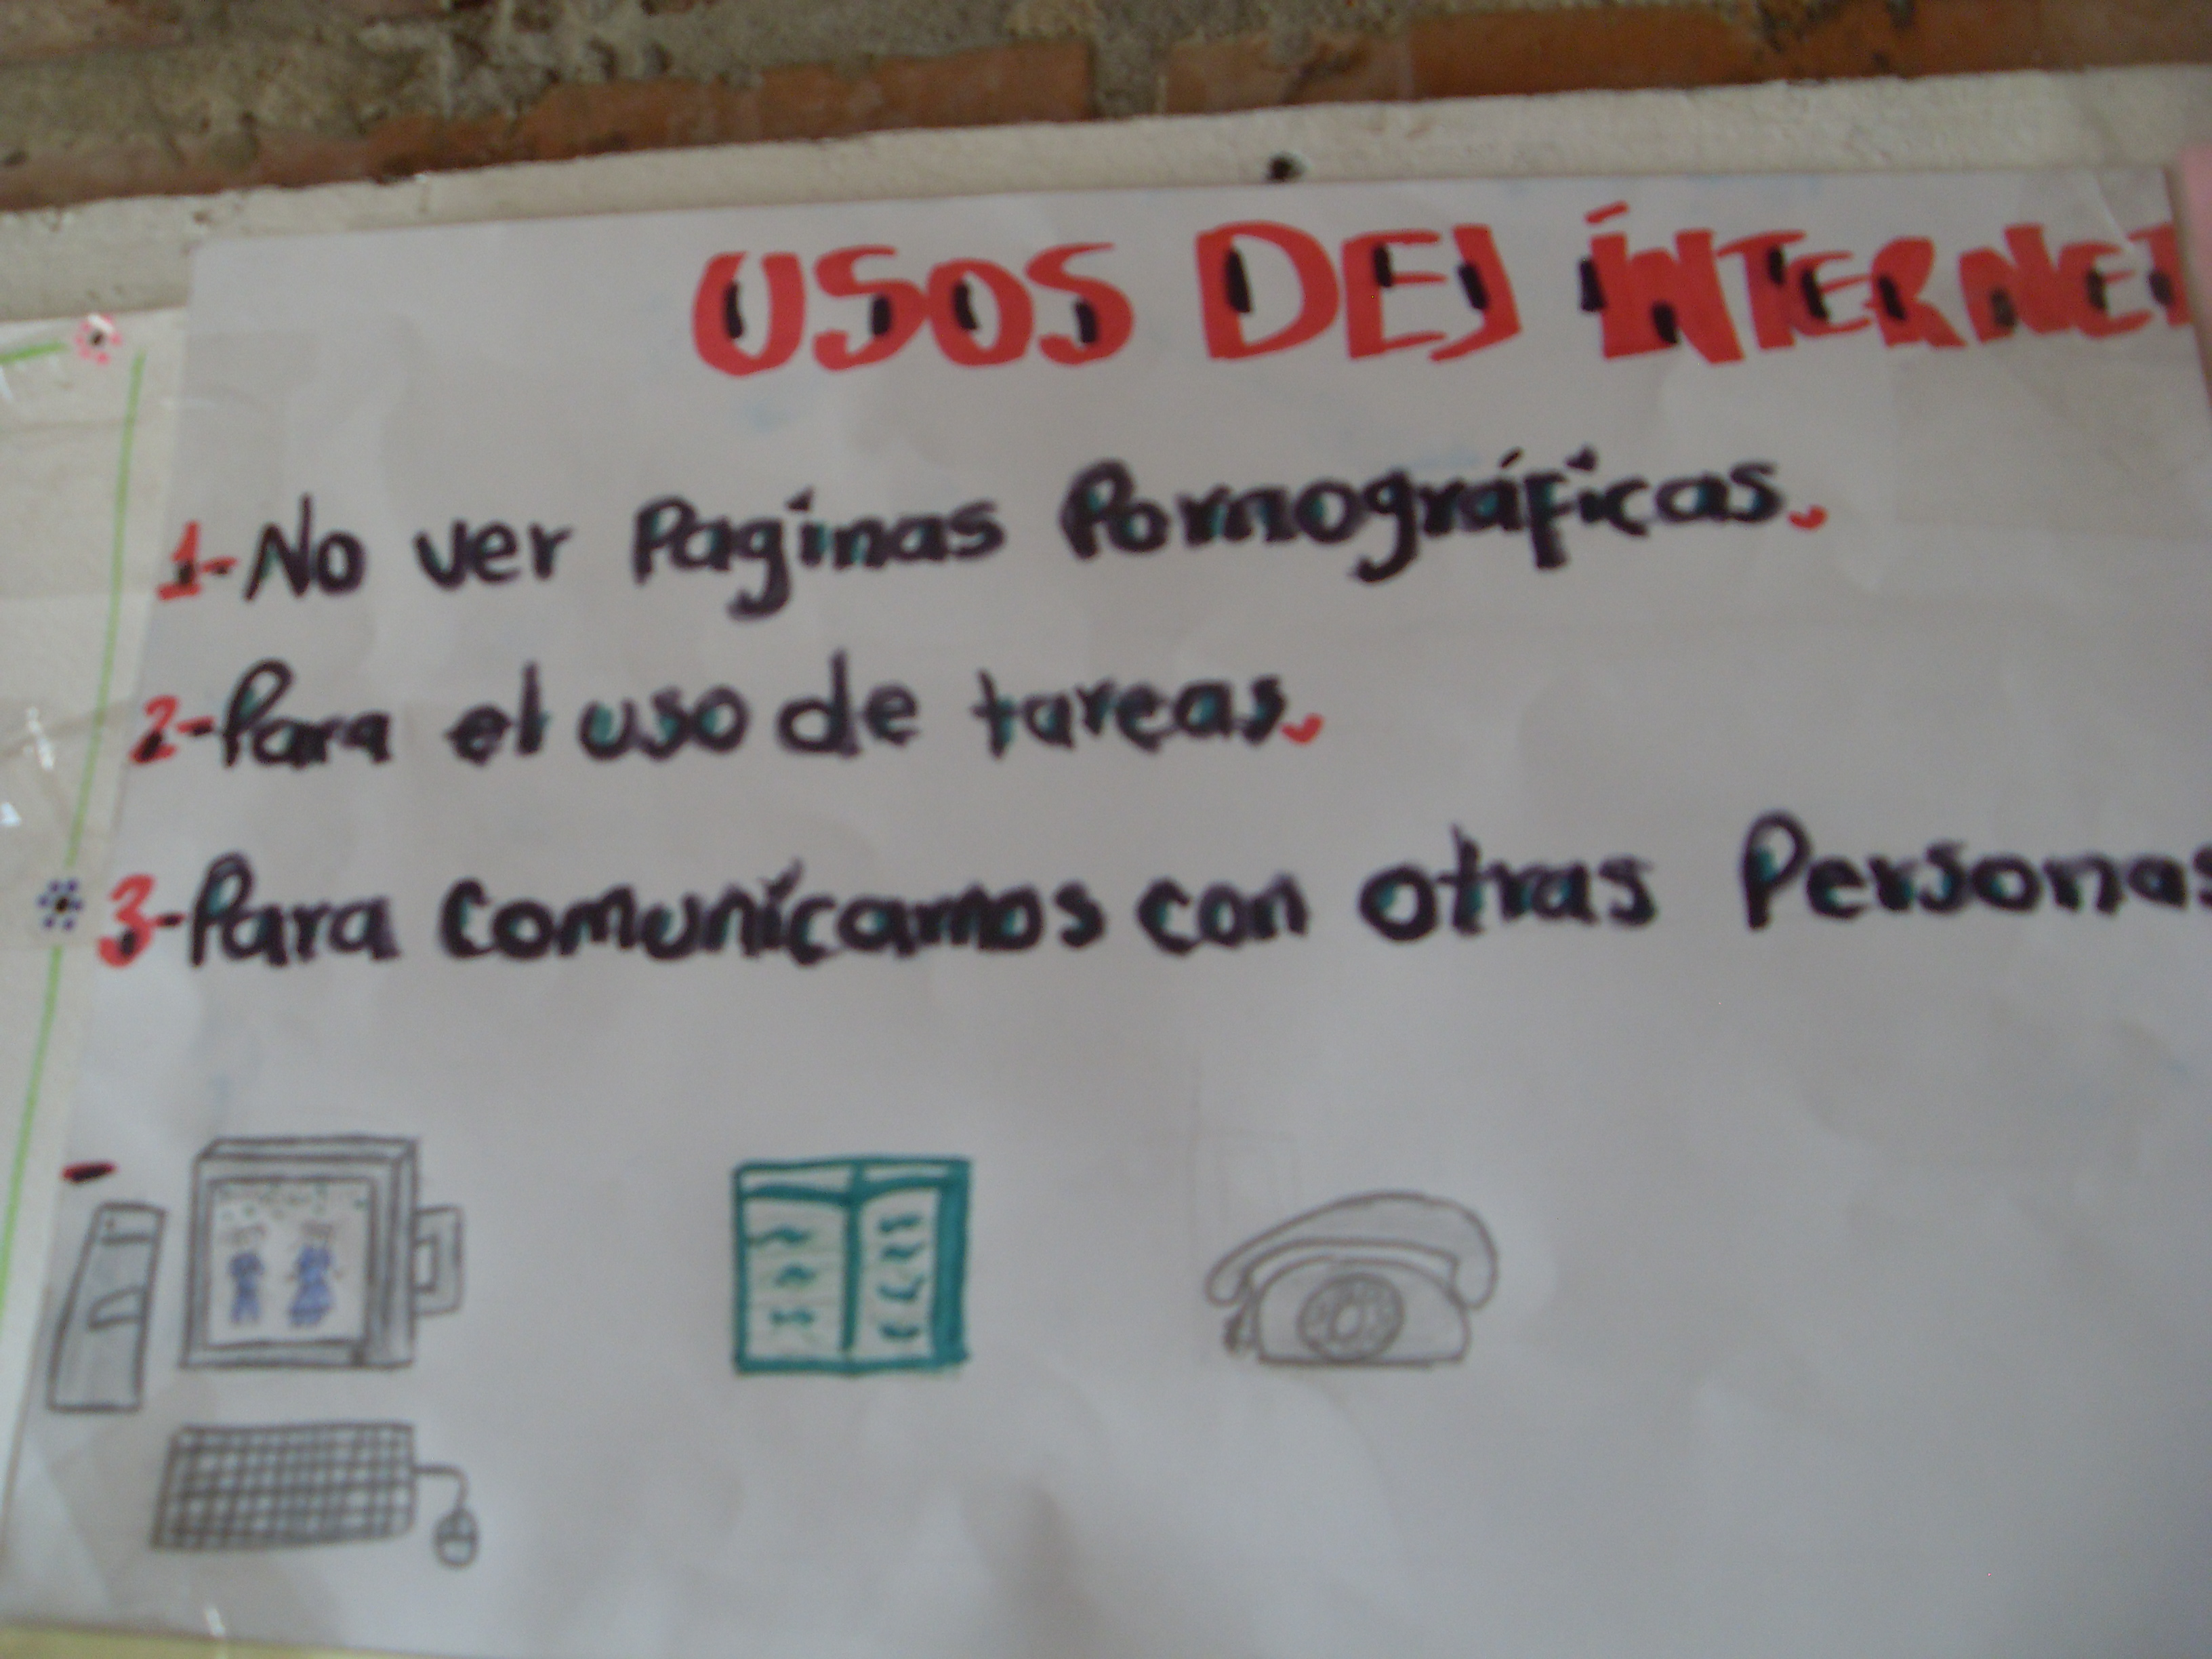 USOS DEL ÍNTERNET
1-No ver Paginas Pornográficas.
2-Para el uso de tareas.
3-Para comunicarnos con otras Personas